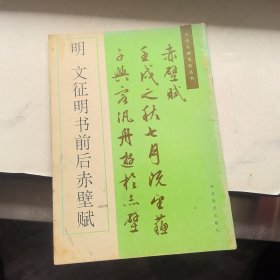 赤壁賦
壬戌之秋七月既望蘇
子與客汎舟遊於赤壁
明 文征明书前后赤壁赋